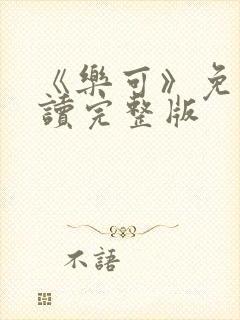 《樂可》免
讀完整版
不語